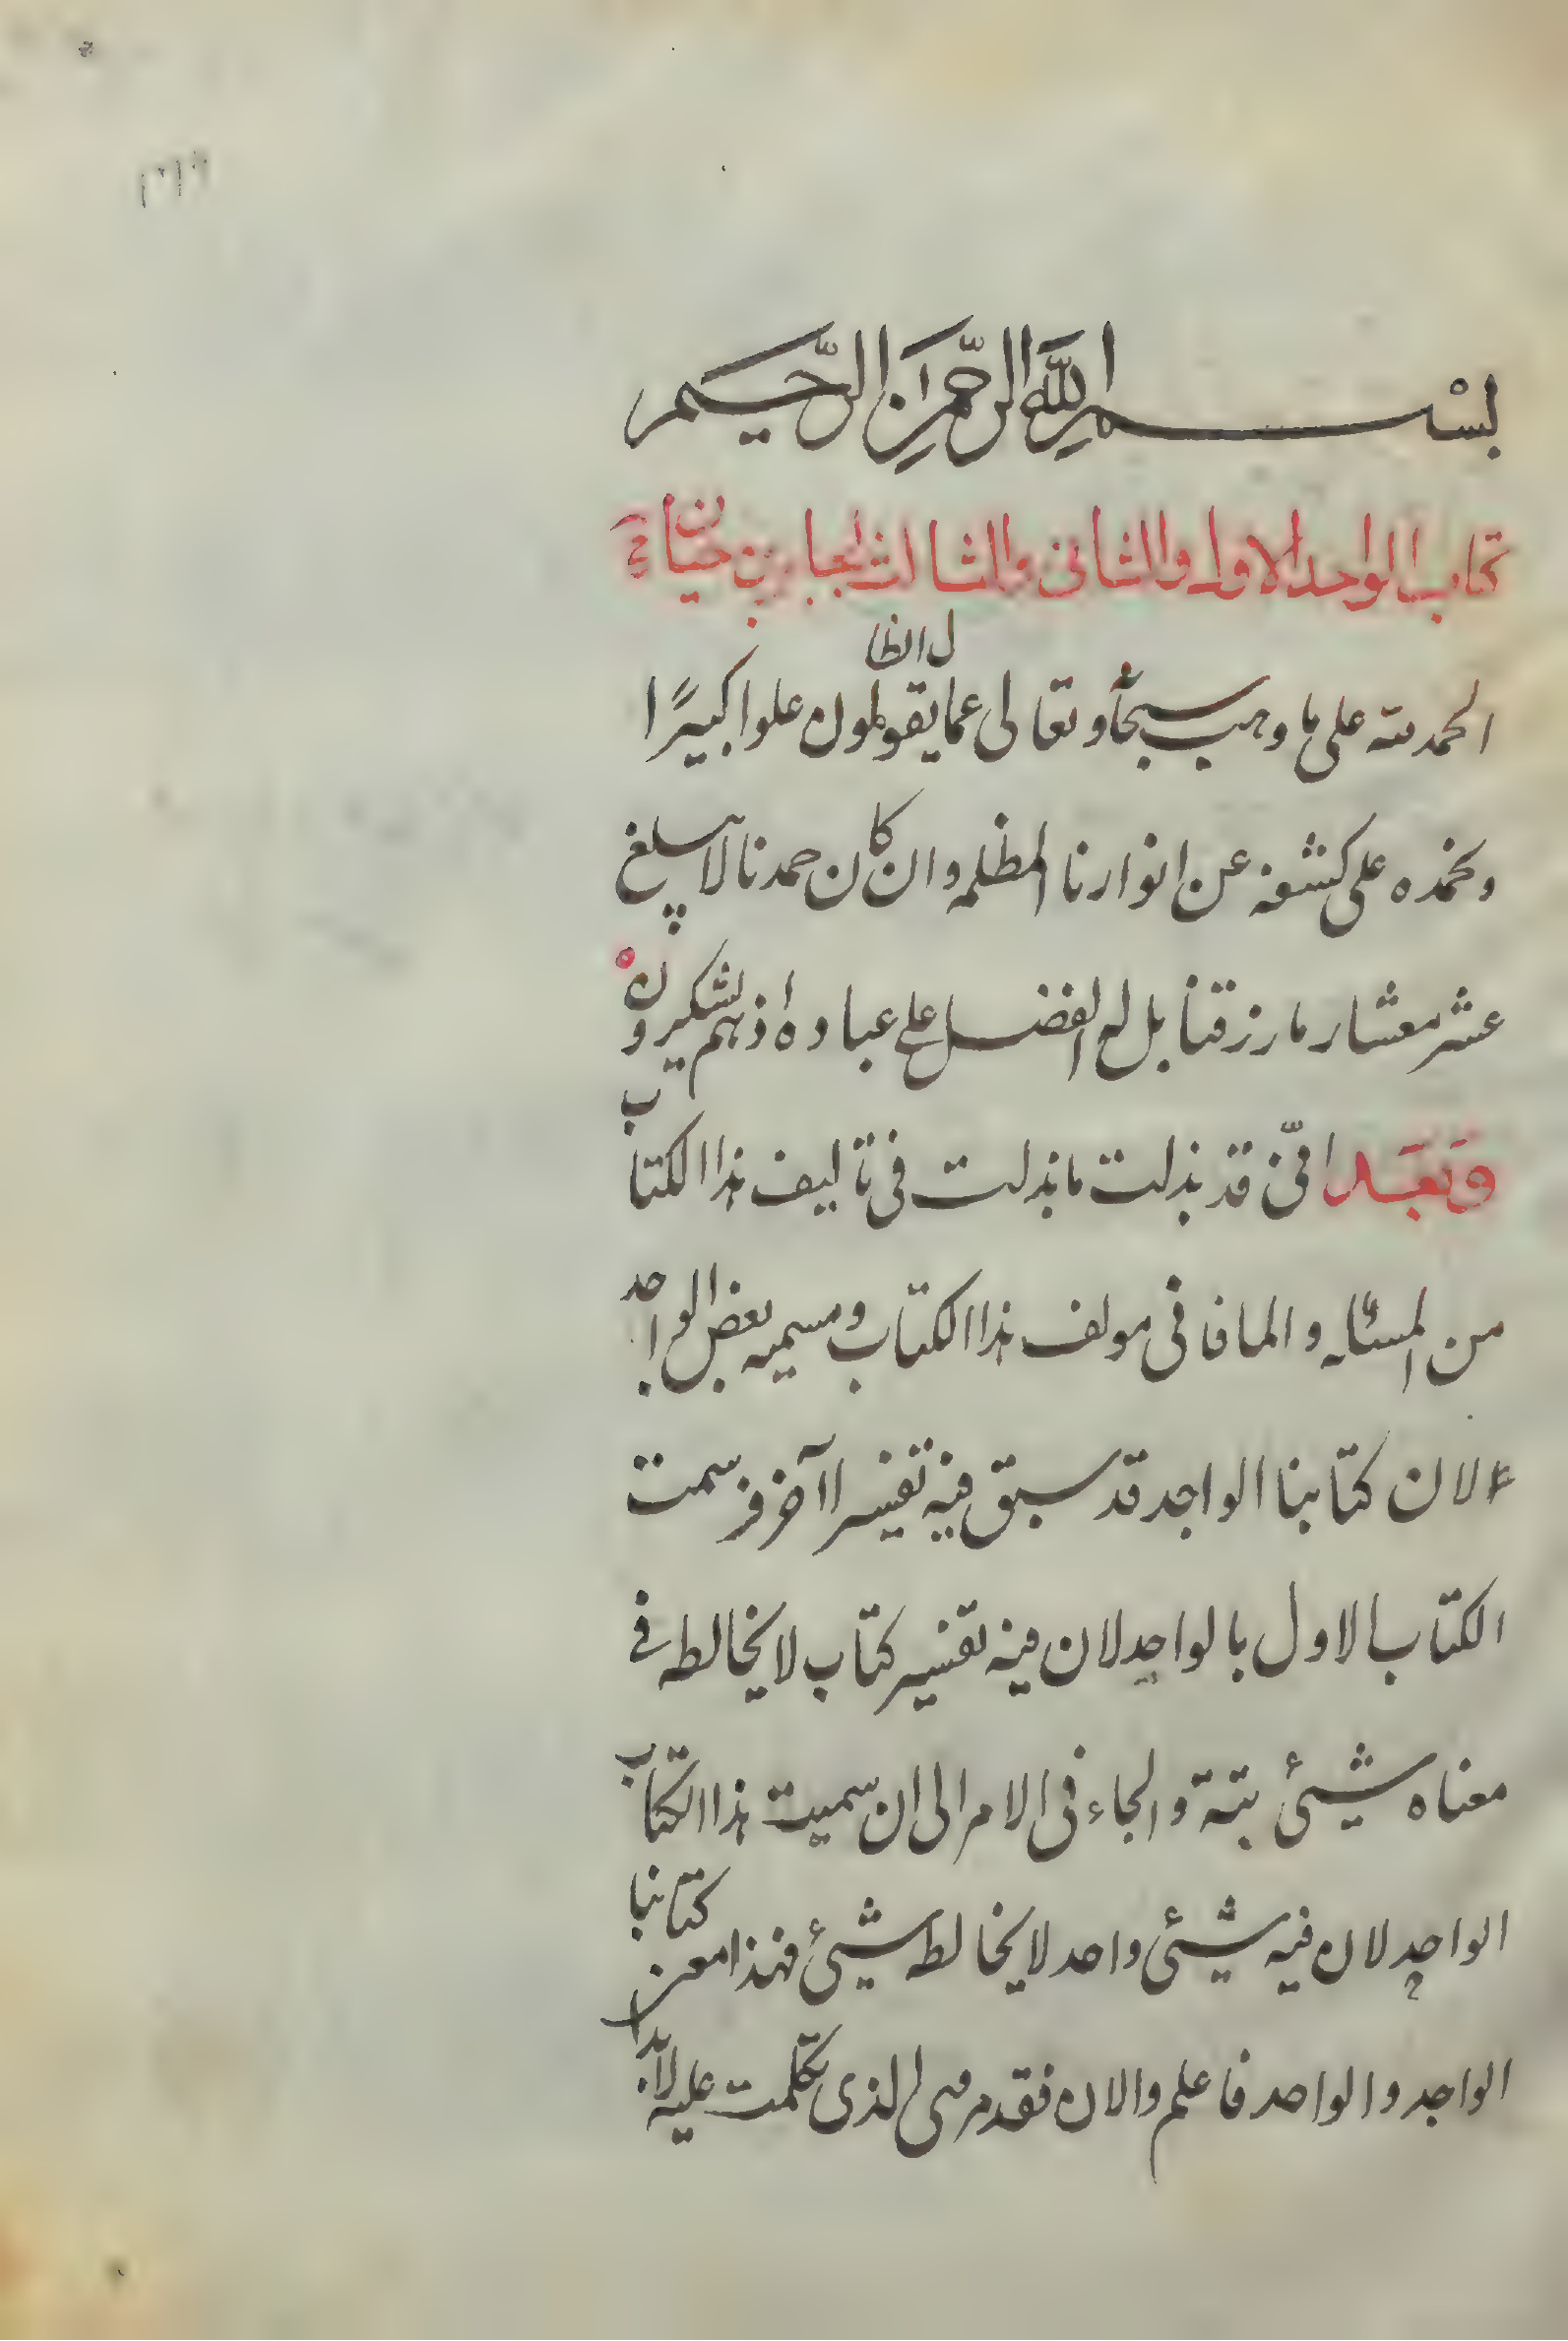 بسم الله الرحمن الرحیم
کتاب الواحد الاول والثانی والثالث لجابر بن حیان
الحمد لله علی ما وهب سبحانه وتعالی عما یقول الظالمون علوا کبیرًا
ونحمده علی کشفه عن انوارنا المظلمه وان کان حمدنا لا یبلغ
عشر معشار ما رزقنا بل له الفضل علی عباده اذ هم یشکرونه
وَبَعَد انّی قد بذلت ما بذلت فی تألیف هذا الکتاب
من المسئله والما فانی مولف هذا الکتاب ومسمیه بعض الواجد
لان کتابنا الواجد قد سبق فیه تفسیرا آخر فرسمت
الکتاب الاول بالواجد لان فیه تفسیر کتاب لا یخالطه فی
معناه شیئ بتة والجاء فی الامر الی ان سمیت هذا الکتاب
الواحد لان فیه شیئی واحد لا یخالطه شیئ فهذا معنی کتابنا
الواجد والواحد فاعلم والان فقد مر لی الذی تکلمت علیه لابدا